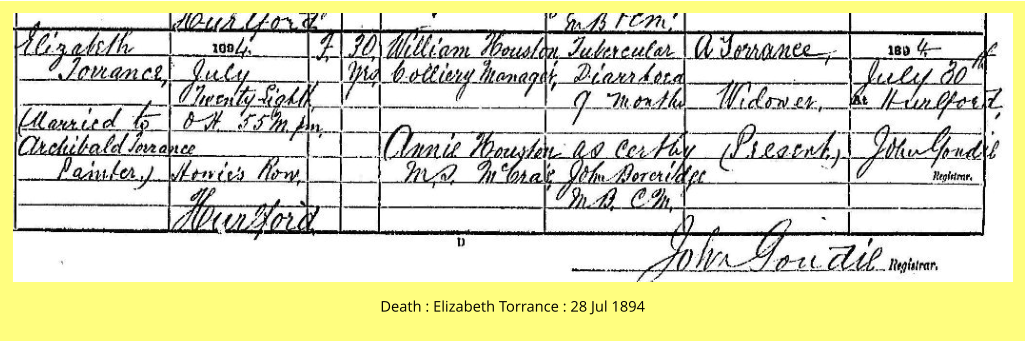 Hurlford
M.B. C.M.
Elizabeth 1894. F. 30 William Houston Tubercular A Torrance, 1894
Torrance, July Yrs Colliery Manager, Diarrhoea July 30th
Twenty Eighth 9 months Widower, At Hurlford,
(Married to 0 H. 55 M. p.m.
Archibald Torrance Annie Houston as certby (Present) John Goudie
Painter,) Howie's Row, M.S. McCrae John Registrar.
Hurlford M.B. C.M.
D
John Goudie Registrar.
Death : Elizabeth Torrance : 28 Jul 1894